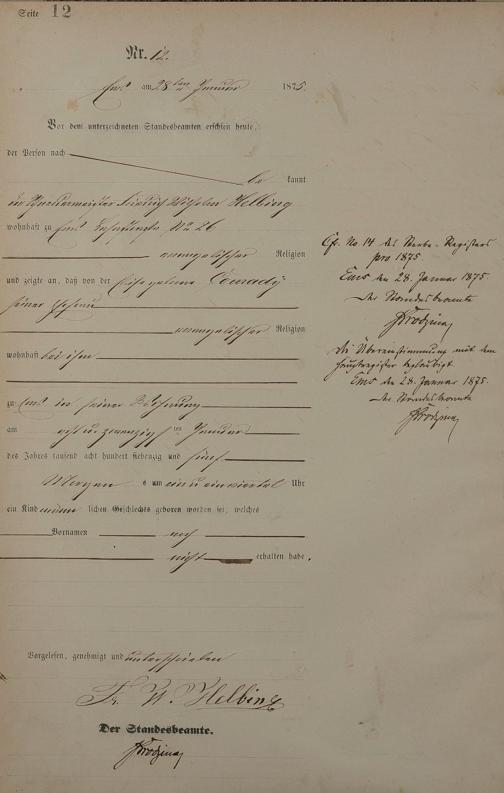 Seite 12
Nr. 12.
Ems am 28ten Januar 1875.
Vor dem unterzeichneten Standesbeamten erschien heute,
der Person nach
be kannt
Wilhelm Helbing
wohnhaft zu Ems No 26
evangelischer Religion
und zeigte an, daß von der geborene Conrady
seiner Ehefrau
evangelischer Religion
wohnhaft bei ihm
zu Ems in seiner Wohnung
am acht u. zwanzigsten Januar
des Jahres tausend acht hundert siebenzig und fünf
Morgen s um ein u ein viertel Uhr
ein Kind männ lichen Geschlechts geboren worden sei, welches
Vornamen noch
nicht erhalten habe.
Vorgelesen, genehmigt und unterschrieben
Fr. W. Helbing
Der Standesbeamte.
Cfr. No. 14 des Sterbe-Registers
pro 1875
Ems den 28. Januar 1875.
Der Standesbeamte
Die Übereinstimmung mit dem
Hauptregister beglaubigt
Ems den 28. Januar 1875.
Der Standesbeamte